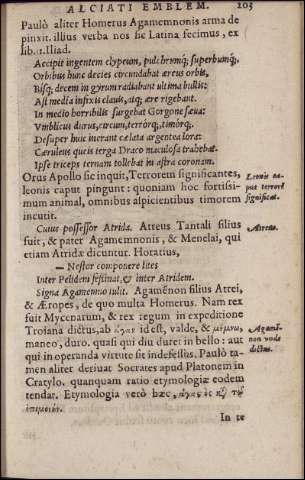 ALCIATI EMBLEM. 203
Paulò aliter Homerus Agamemnonis arma de
pinxit. illius verba nos sic Latina fecimus, ex
lib. 11. Iliad.
Accipit ingentem clypeum, pulchrumq́; superbumq́;,
Orbibus hunc decies circundabat æreus orbis,
Bisq́; decem in gyrum radiabant vltima bullis:
Ast media infixis clauis, atq́; ære rigebant.
In medio horribilis surgebat Gorgone sæua:
Vmbilicus durus, circum, terrorq́;, timorq́;.
Desuper huic inerant cælata argentea lora:
Cæruleus queis terga Draco maculosa trahebat:
Ipse triceps ternam tollebat in astra coronam.
Orus Apollo sic inquit, Terrorem significantes,
leonis caput pingunt: quoniam hoc fortissi-
mum animal, omnibus alpicientibus timorem
incutit.
Leonis ca-
put terrorē
significat.
Cuius possessor Atrida. Atreus Tantali filius
fuit, & pater Agamemnonis, & Menelai, qui
etiam Atridæ dicuntur. Horatius,
Atreus.
— Nestor componere lites
Inter Peliden festinat, & inter Atridem.
Signa Agamemno tulit. Agamēnon filius Atrei,
& Æropes, de quo multa Homerus. Nam rex
fuit Mycenarum, & rex regum in expeditione
Troiana dictus, ab ἄγαν id est, valde, & μένω,
maneo, duro. quasi qui diu duret in bello: aut
qui in operanda virtute sit indefessus. Paulò ta-
men aliter deriuat Socrates apud Platonem in
Cratylo. quanquam ratio etymologiæ eodem
tendat. Etymologia verò hæc, ἀγαστὸς κατὰ τὴν
ἐπιμονὴν.
Agamē-
non vnde
dictus.
In te